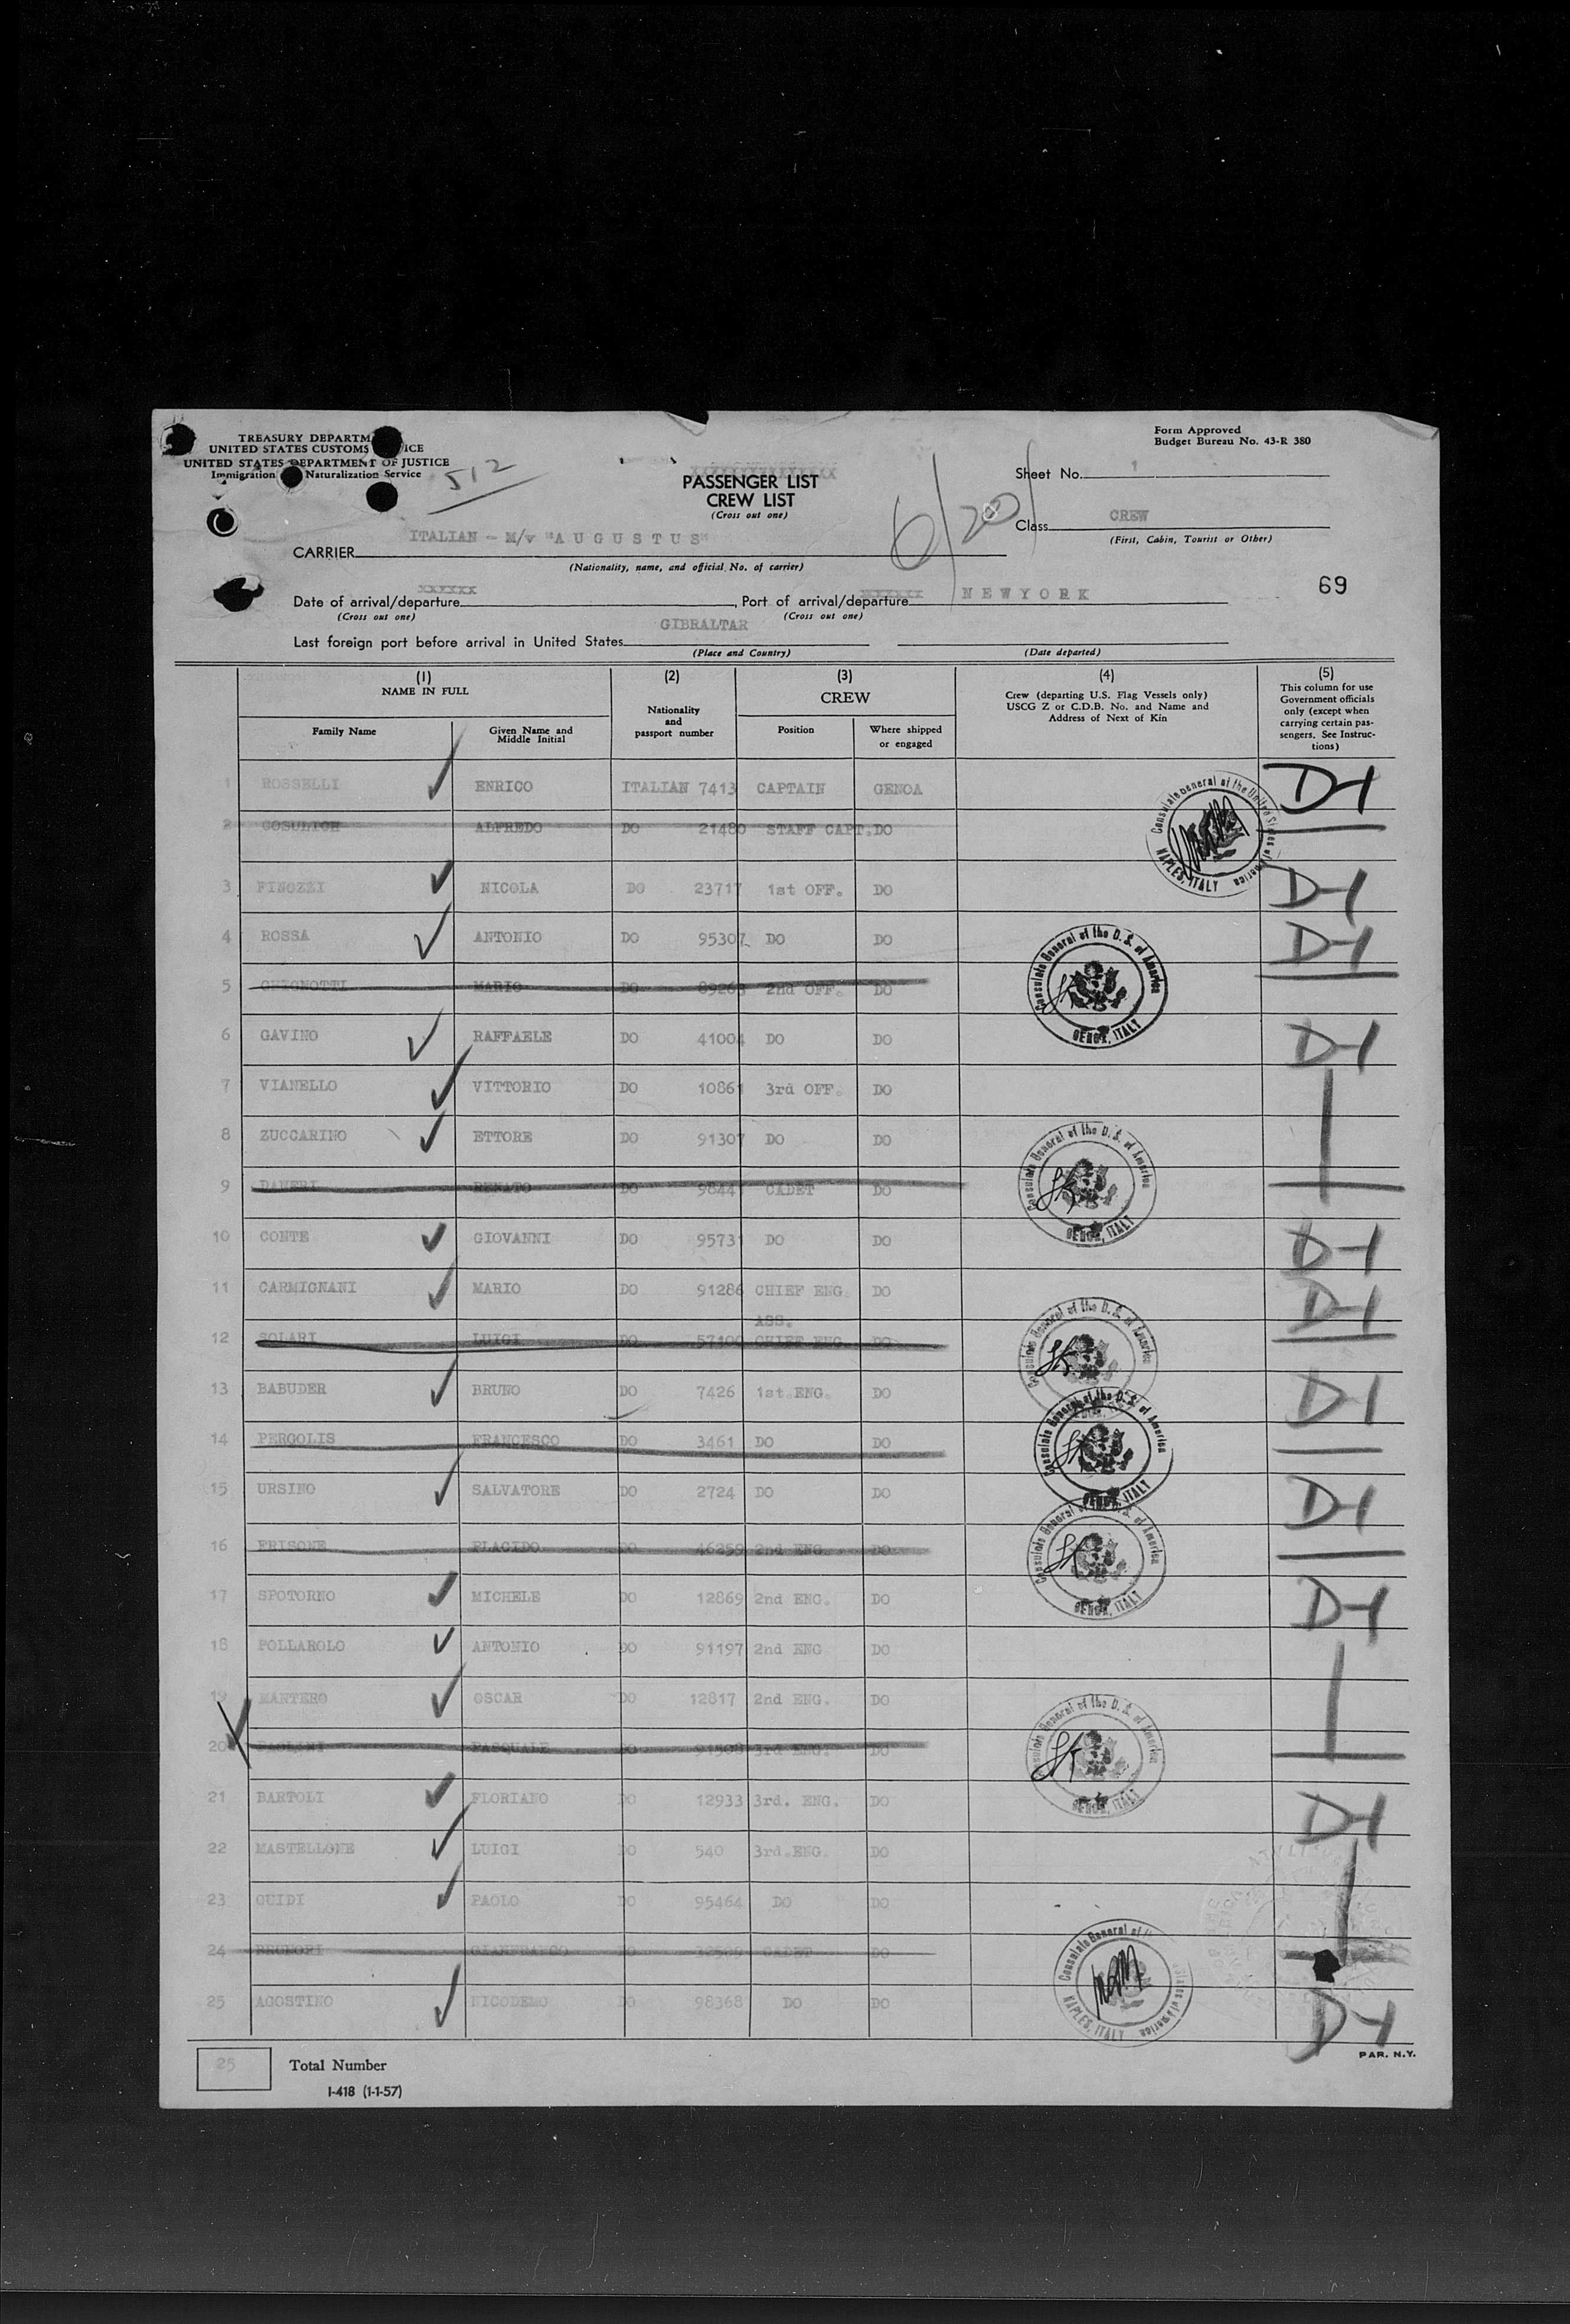 TREASURY DEPARTM ICE
UNITED STATES CUSTOMS
UNITED STATES DEPARTMENT OF JUSTICE
Immigration Naturalization Service
512
Form Approved
Budget Bureau No. 43-R 380
PASSENGER LIST
CREW LIST
(Cross out one)
6/20
Sheet No. 1
Class CREW
(First, Cabin, Tourist or Other)
CARRIER ITALIAN - M/v "AUGUSTUS"
(Nationality, name, and official No. of carrier)
69
Date of arrival/departure xxxxxx , Port of arrival/departure NEWYORK
(Cross out one) (Cross out one)
Last foreign port before arrival in United States GIBRALTAR
(Place and Country) (Date departed)
(1) NAME IN FULL
Family Name
Given Name and Middle Initial
(2) Nationality and passport number
(3) CREW
Position
Where shipped or engaged
(4) Crew (departing U.S. Flag Vessels only) USCG Z or C.D.B. No. and Name and Address of Next of Kin
(5) This column for use Government officials only (except when carrying certain passengers. See Instructions)
1 ROSSELLI ENRICO ITALIAN 7413 CAPTAIN GENOA D-1
2 COSULICH ALFREDO DO 21480 STAFF CAPT. DO
3 FINOZZI NICOLA DO 23717 1st OFF. DO D-1
4 ROSSA ANTONIO DO 95307 DO DO D-1
5 MARIO DO 2nd OFF. DO
6 GAVINO RAFFAELE DO 41004 DO DO D-1
7 VIANELLO VITTORIO DO 10861 3rd OFF. DO
8 ZUCCARINO ETTORE DO 91307 DO DO
9 DANERI RENATO DO 98447 CADET DO
10 CONTE GIOVANNI DO 95731 DO DO D-1
11 CARMIGNANI MARIO DO 91286 CHIEF ENG. DO D-1
12 SOLARI LUIGI DO 57100 ASS. CHIEF ENG. DO
13 BABUDER BRUNO DO 7426 1st.ENG. DO D-1
14 PERGOLIS FRANCESCO DO 3461 DO DO
15 URSINO SALVATORE DO 2724 DO DO D-1
16 FRISONE PLACIDO DO 46259 2nd ENG. DO
17 SPOTORNO MICHELE DO 12869 2nd ENG. DO D-1
18 POLLAROLO ANTONIO DO 91197 2nd ENG DO
19 MANTERO OSCAR DO 12817 2nd ENG. DO
20 PAOLINI PASQUALE DO 3rd ENG. DO
21 BARTOLI FLORIANO DO 12933 3rd. ENG. DO D-1
22 MASTELLONE LUIGI DO 540 3rd.ENG. DO
23 GUIDI PAOLO DO 95464 DO DO
24 BRUNORI GIANFRANCO DO CADET DO
25 AGOSTINO NICODEMO DO 98368 DO DO D-1
Consulate General of the United States of America
NAPLES, ITALY
Consulate General of the U. S. of America
GENOA, ITALY
Consulate General of the U. S. of America
GENOA, ITALY
Consulate General of the U. S. of America
Consulate General of the U. S. of America
GENOA, ITALY
Consulate General of the U. S. of America
GENOA, ITALY
Consulate General of the U. S. of America
GENOA, ITALY
Consulate General of States of America
NAPLES, ITALY
25 Total Number
I-418 (1-1-57)
PAR. N.Y.